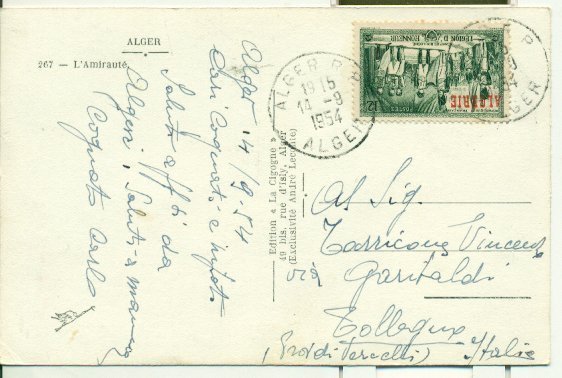 ALGER
267 - L'Amirauté
Alger 14/9.54
Cari Cognati e nipoti
Saluti aff.ti da
Algeri, Saluti a mamma
Cognato Carlo
Edition « La Cigogne »
49 bis, rue d'Isly, Alger
(Exclusivité André Leconte)
ALGERIE
LEGION D'HONNEUR
POSTES
12f
ALGER R.P
19 15
14 - 9
1954
ALGER
Al Sig.
Tarricone Vincenzo
via Garibaldi
Tollegno
(Prov di Vercelli) Italia